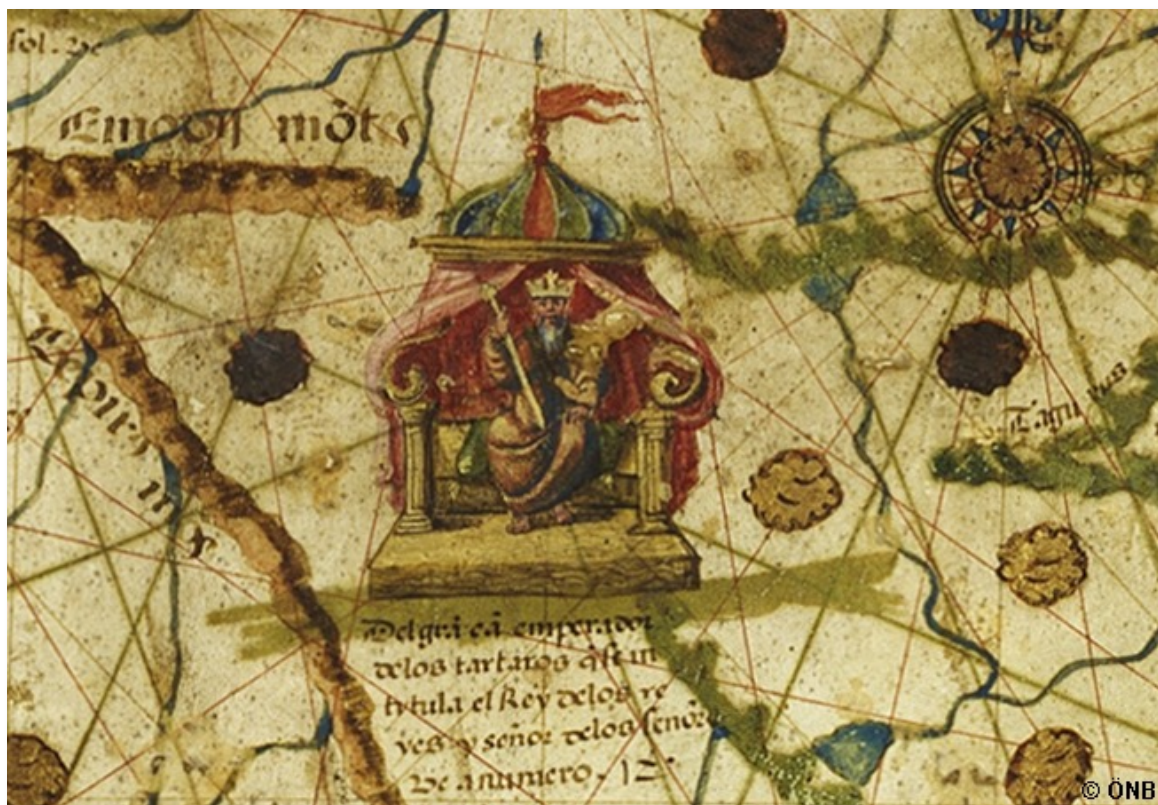 sol. de
Emodij mõtes
Tagu rus
Del grã cã emperador
delos tartaros q̃ se in
titula el Rey delos re
yes y señor delos señores
ve a numero. 12
© ÖNB